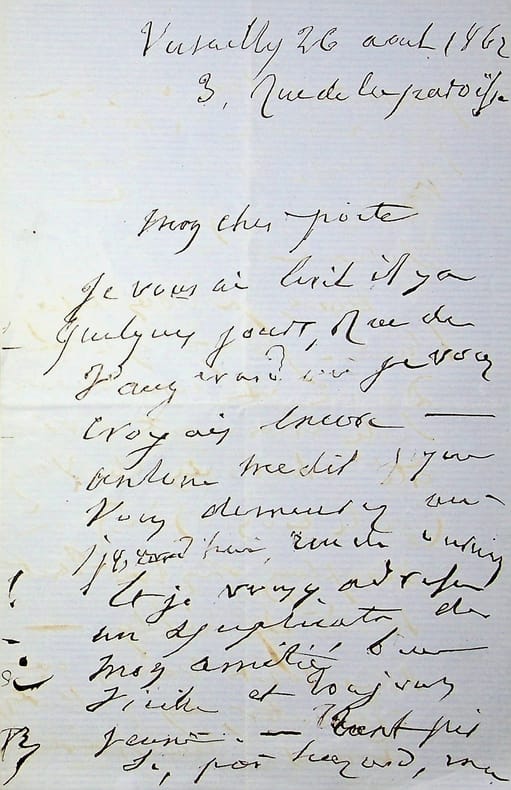 Versailles 26 aout 1862
3, Rue de la paroisse
mon cher poète
Je vous ai écrit il y a
quelques jours, Rue de
où je vous
croyais encore —
antoni me dit que
vous demeurez au-
jourd'hui, rue de
Et je vous adresse
un duplicata de
mon amitié,
vieille et toujours
jeune. — Tant pis
Si, par hazard, ma